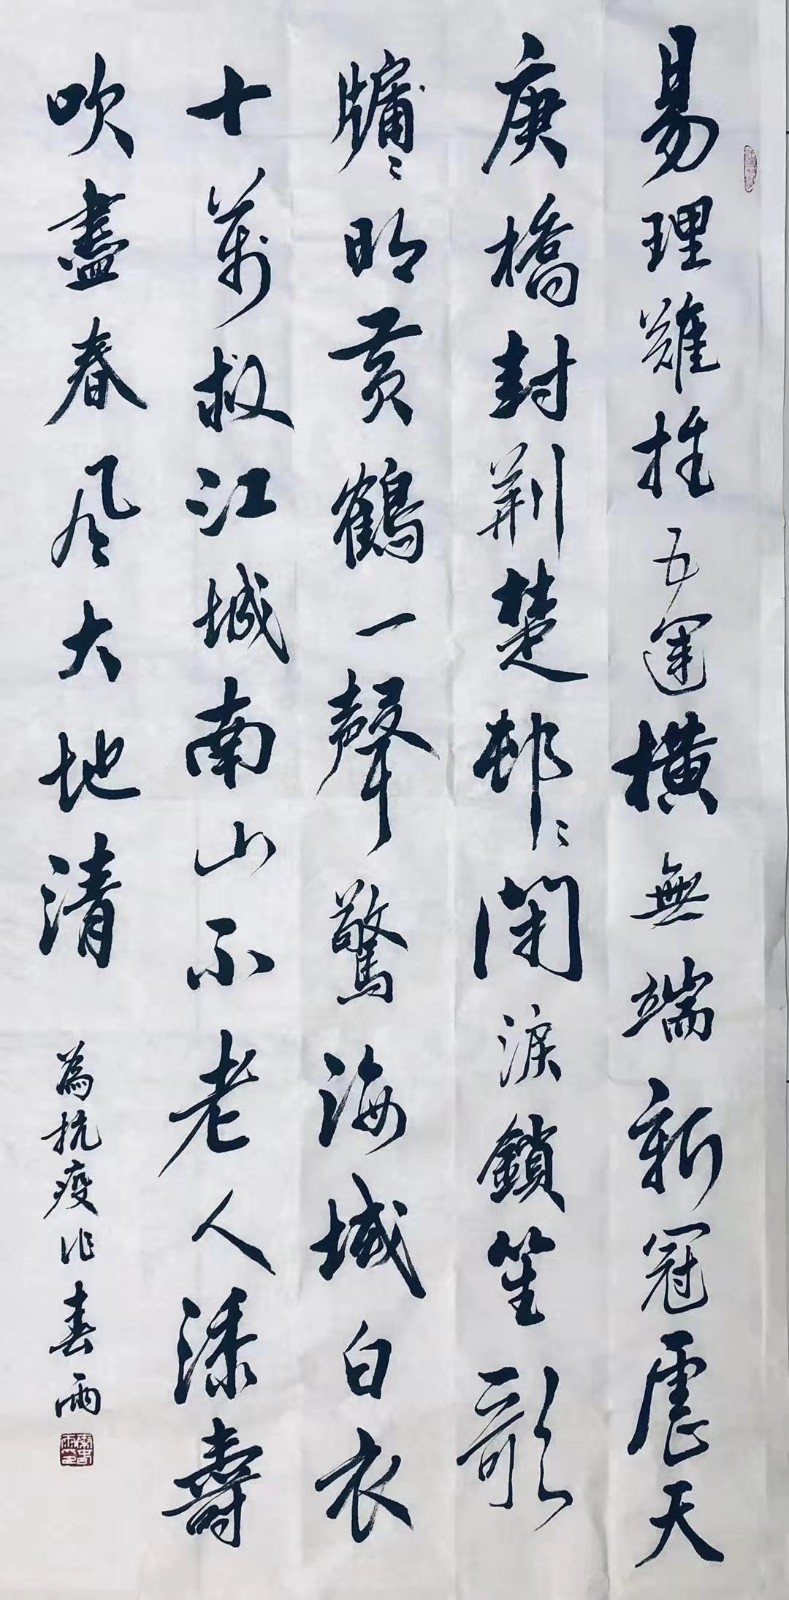 易理難推五運橫無端新冠虐天
庚橋封荆楚邨〻閉淚鎖笙歌
牖〻明黃鶴一聲驚海城白衣
十萬救江城南山不老人添壽
吹盡春風大地清
為抗疫作春雨